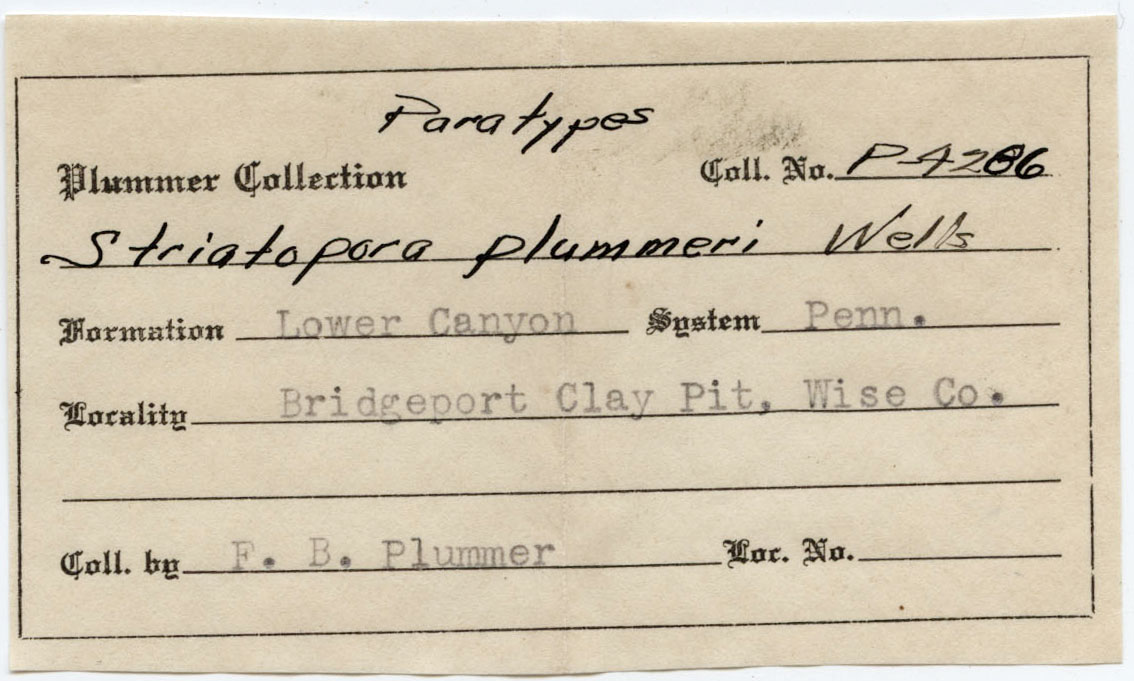 Paratypes
Plummer Collection Coll. No. P-4286
Striatopora plummeri Wells
Formation Lower Canyon System Penn.
Locality Bridgeport Clay Pit, Wise Co.
Coll. by F. B. Plummer Loc. No.